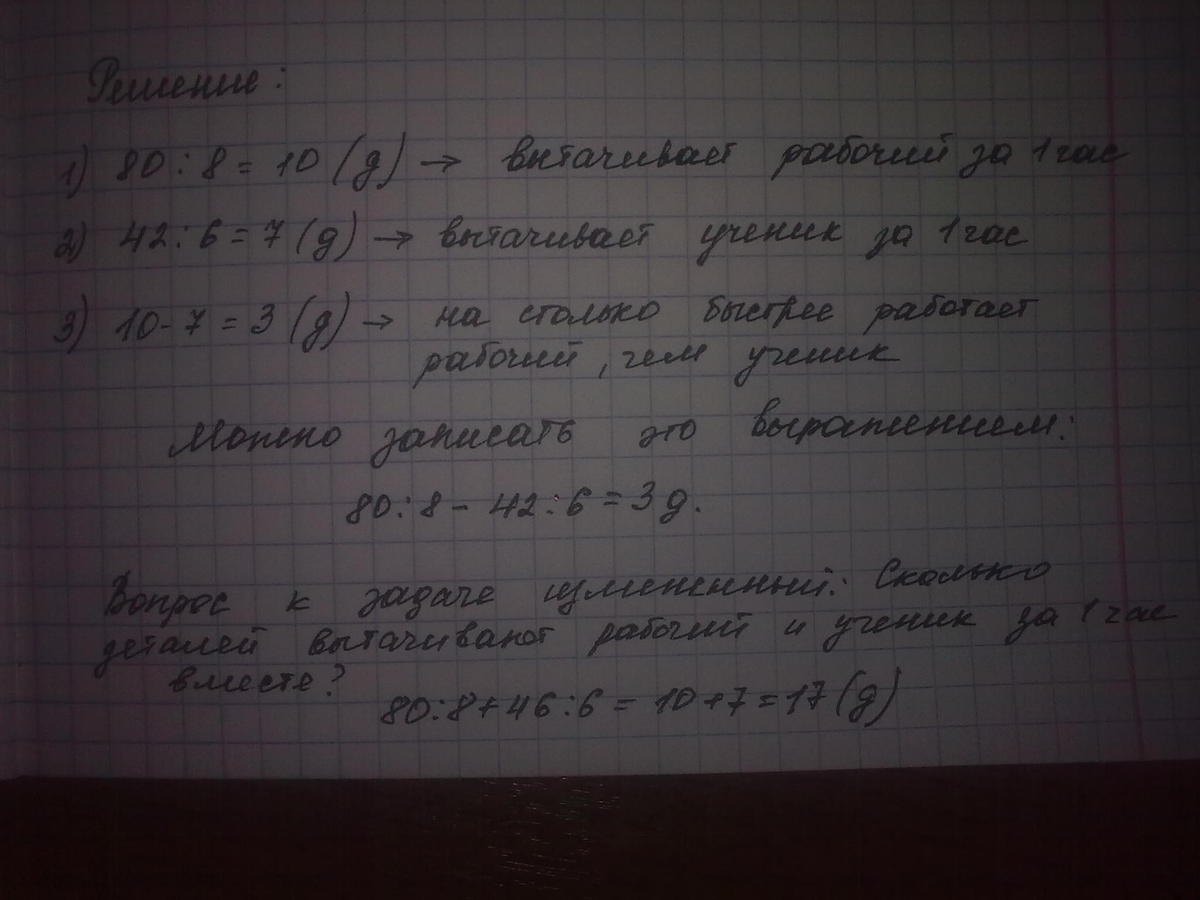 Решение:
1) 80:8=10 (д) → вытачивает рабочий за 1 час
2) 42:6=7 (д) → вытачивает ученик за 1 час
3) 10-7=3 (д) → на столько быстрее работает
рабочий, чем ученик
Можно записать это выражением:
80:8-42:6=3 д.
Вопрос к задаче измененный: Сколько
деталей вытачивают рабочий и ученик за 1 час
вместе?
80:8+46:6=10+7=17 (д)